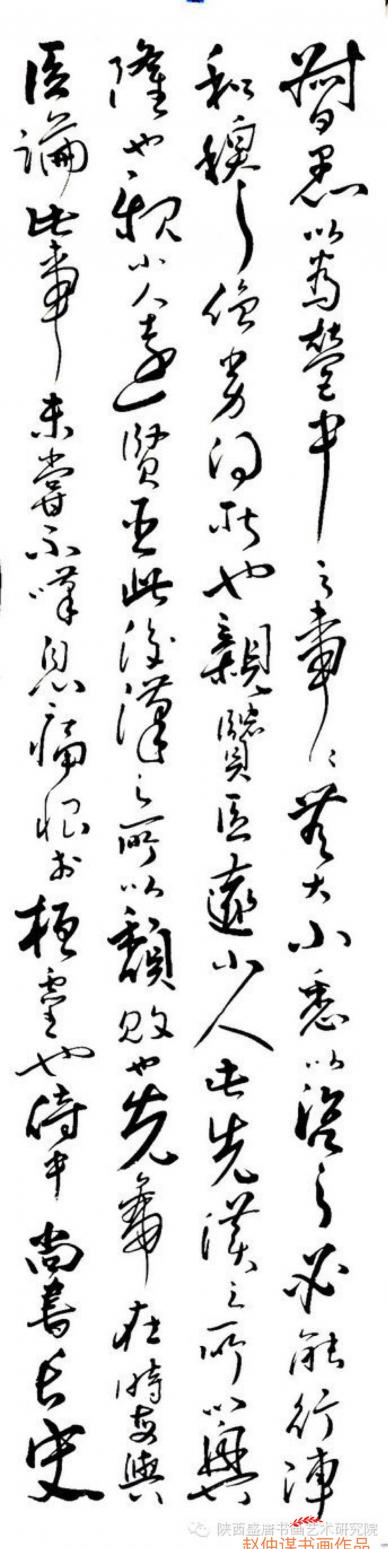 督愚以為營中之事〻無大小悉以諮之必能行陣
和穆優劣得所也親賢臣遠小人此先漢之所以興
隆也親小人遠賢臣此後漢之所以頹敗也先帝在時每與
臣論此事未嘗不嘆息痛恨於桓靈也侍中尚書長史
陕西盛唐书画艺术研究院
赵仲谋书画作品